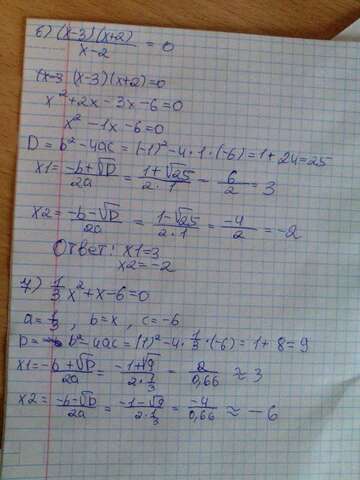 б) (x-3)(x+2)/x-2 = 0
(x-3)(x+2)=0
x²+2x-3x-6=0
x²-1x-6=0
D=b²-4ac=(-1)²-4·1·(-6)=1+24=25
x1=-b+√D/2a=1+√25/2·1-6/2=3
x2=-b-√D/2a=1-√25/2·1=-4/2=-2
Ответ: x1=3
x2=-2
7) 1/3x²+x-6=0
a=1/3, b=x, c=-6
D=b²-4ac=(1)²-4·1/3·(-6)=1+8=9
x1=-b+√D/2a=-1+√9/2·1/3=2/0,66≈3
x2=-b-√D/2a=-1-√9/2·1/3=-4/0,66≈-6